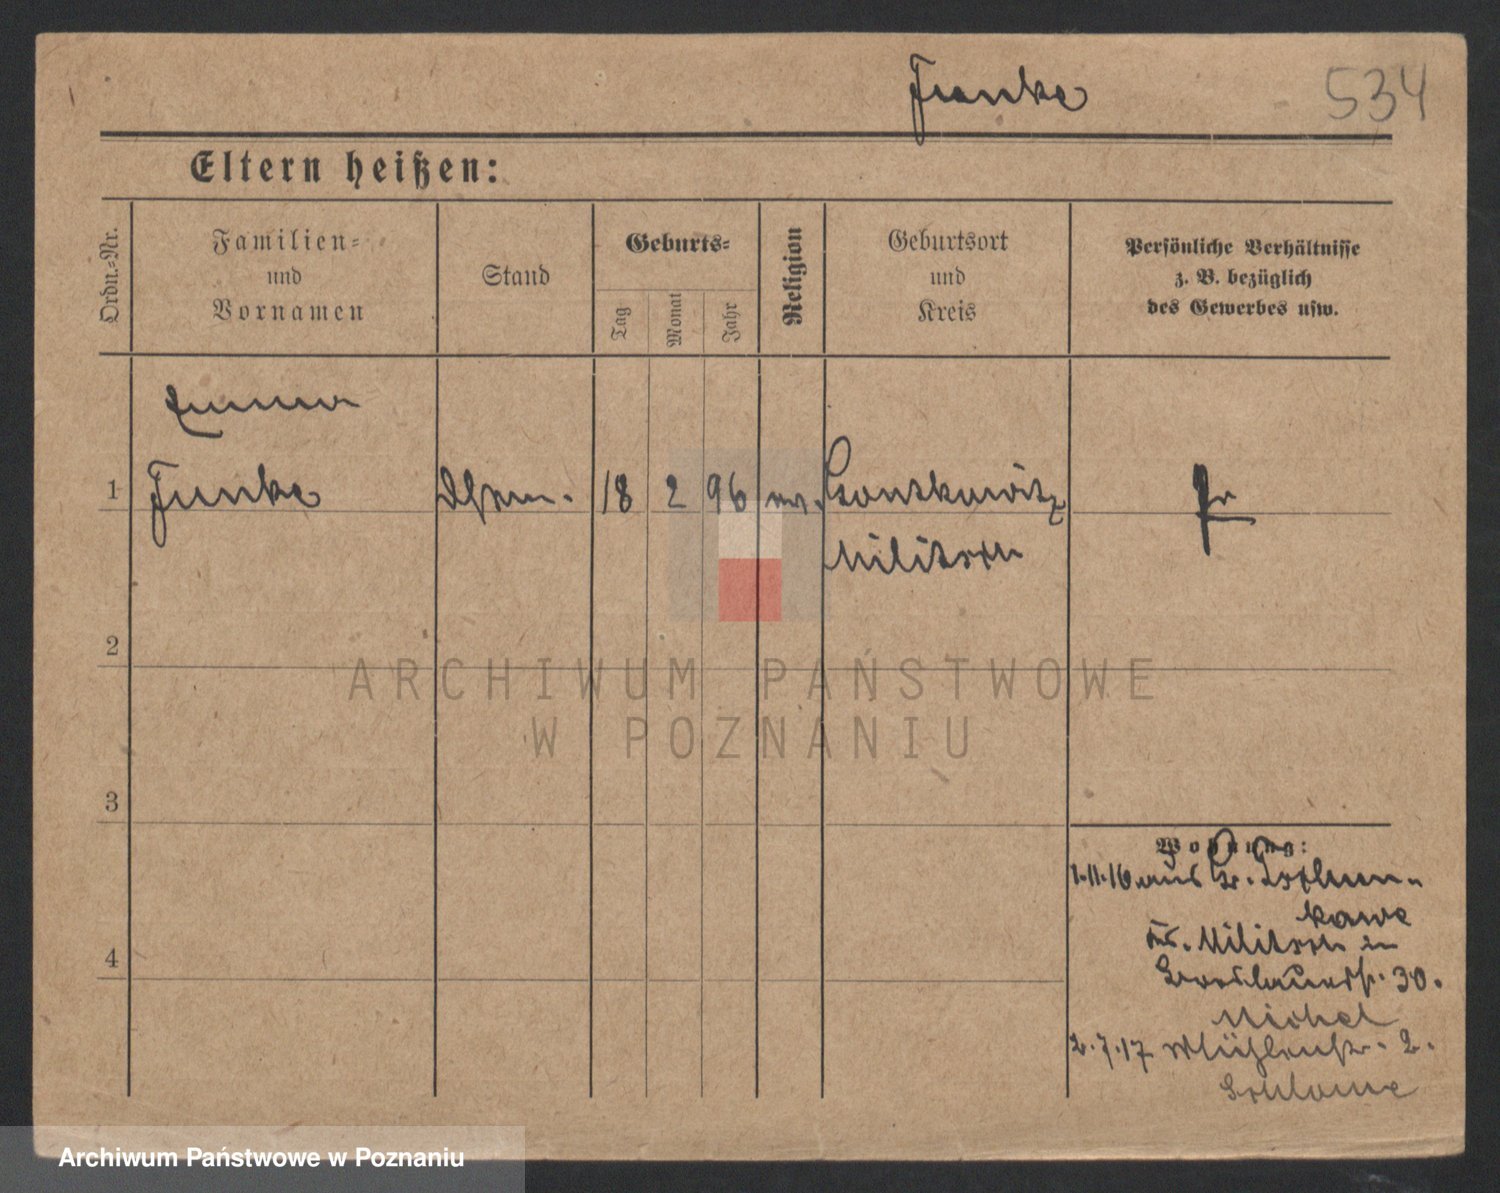 Funke
534
Eltern heißen:
Ordn.-Nr.
Familien-
und
Vornamen
Stand
Geburts-
Tag
Monat
Jahr
Religion
Geburtsort
und
Kreis
Persönliche Verhältnisse
z. B. bezüglich
des Gewerbes usw.
Emma
1 Funke 18 2 96 ev. Gontkowitz
Militsch
Pr
2
3
4
Wohnung:
1.11.16 aus Gr.
kawe
Kr. Militsch in
Breslauerstr. 30.
Michel
2.7.17 Mühlenstr. 2.
ARCHIWUM PAŃSTWOWE
W POZNANIU
Archiwum Państwowe w Poznaniu